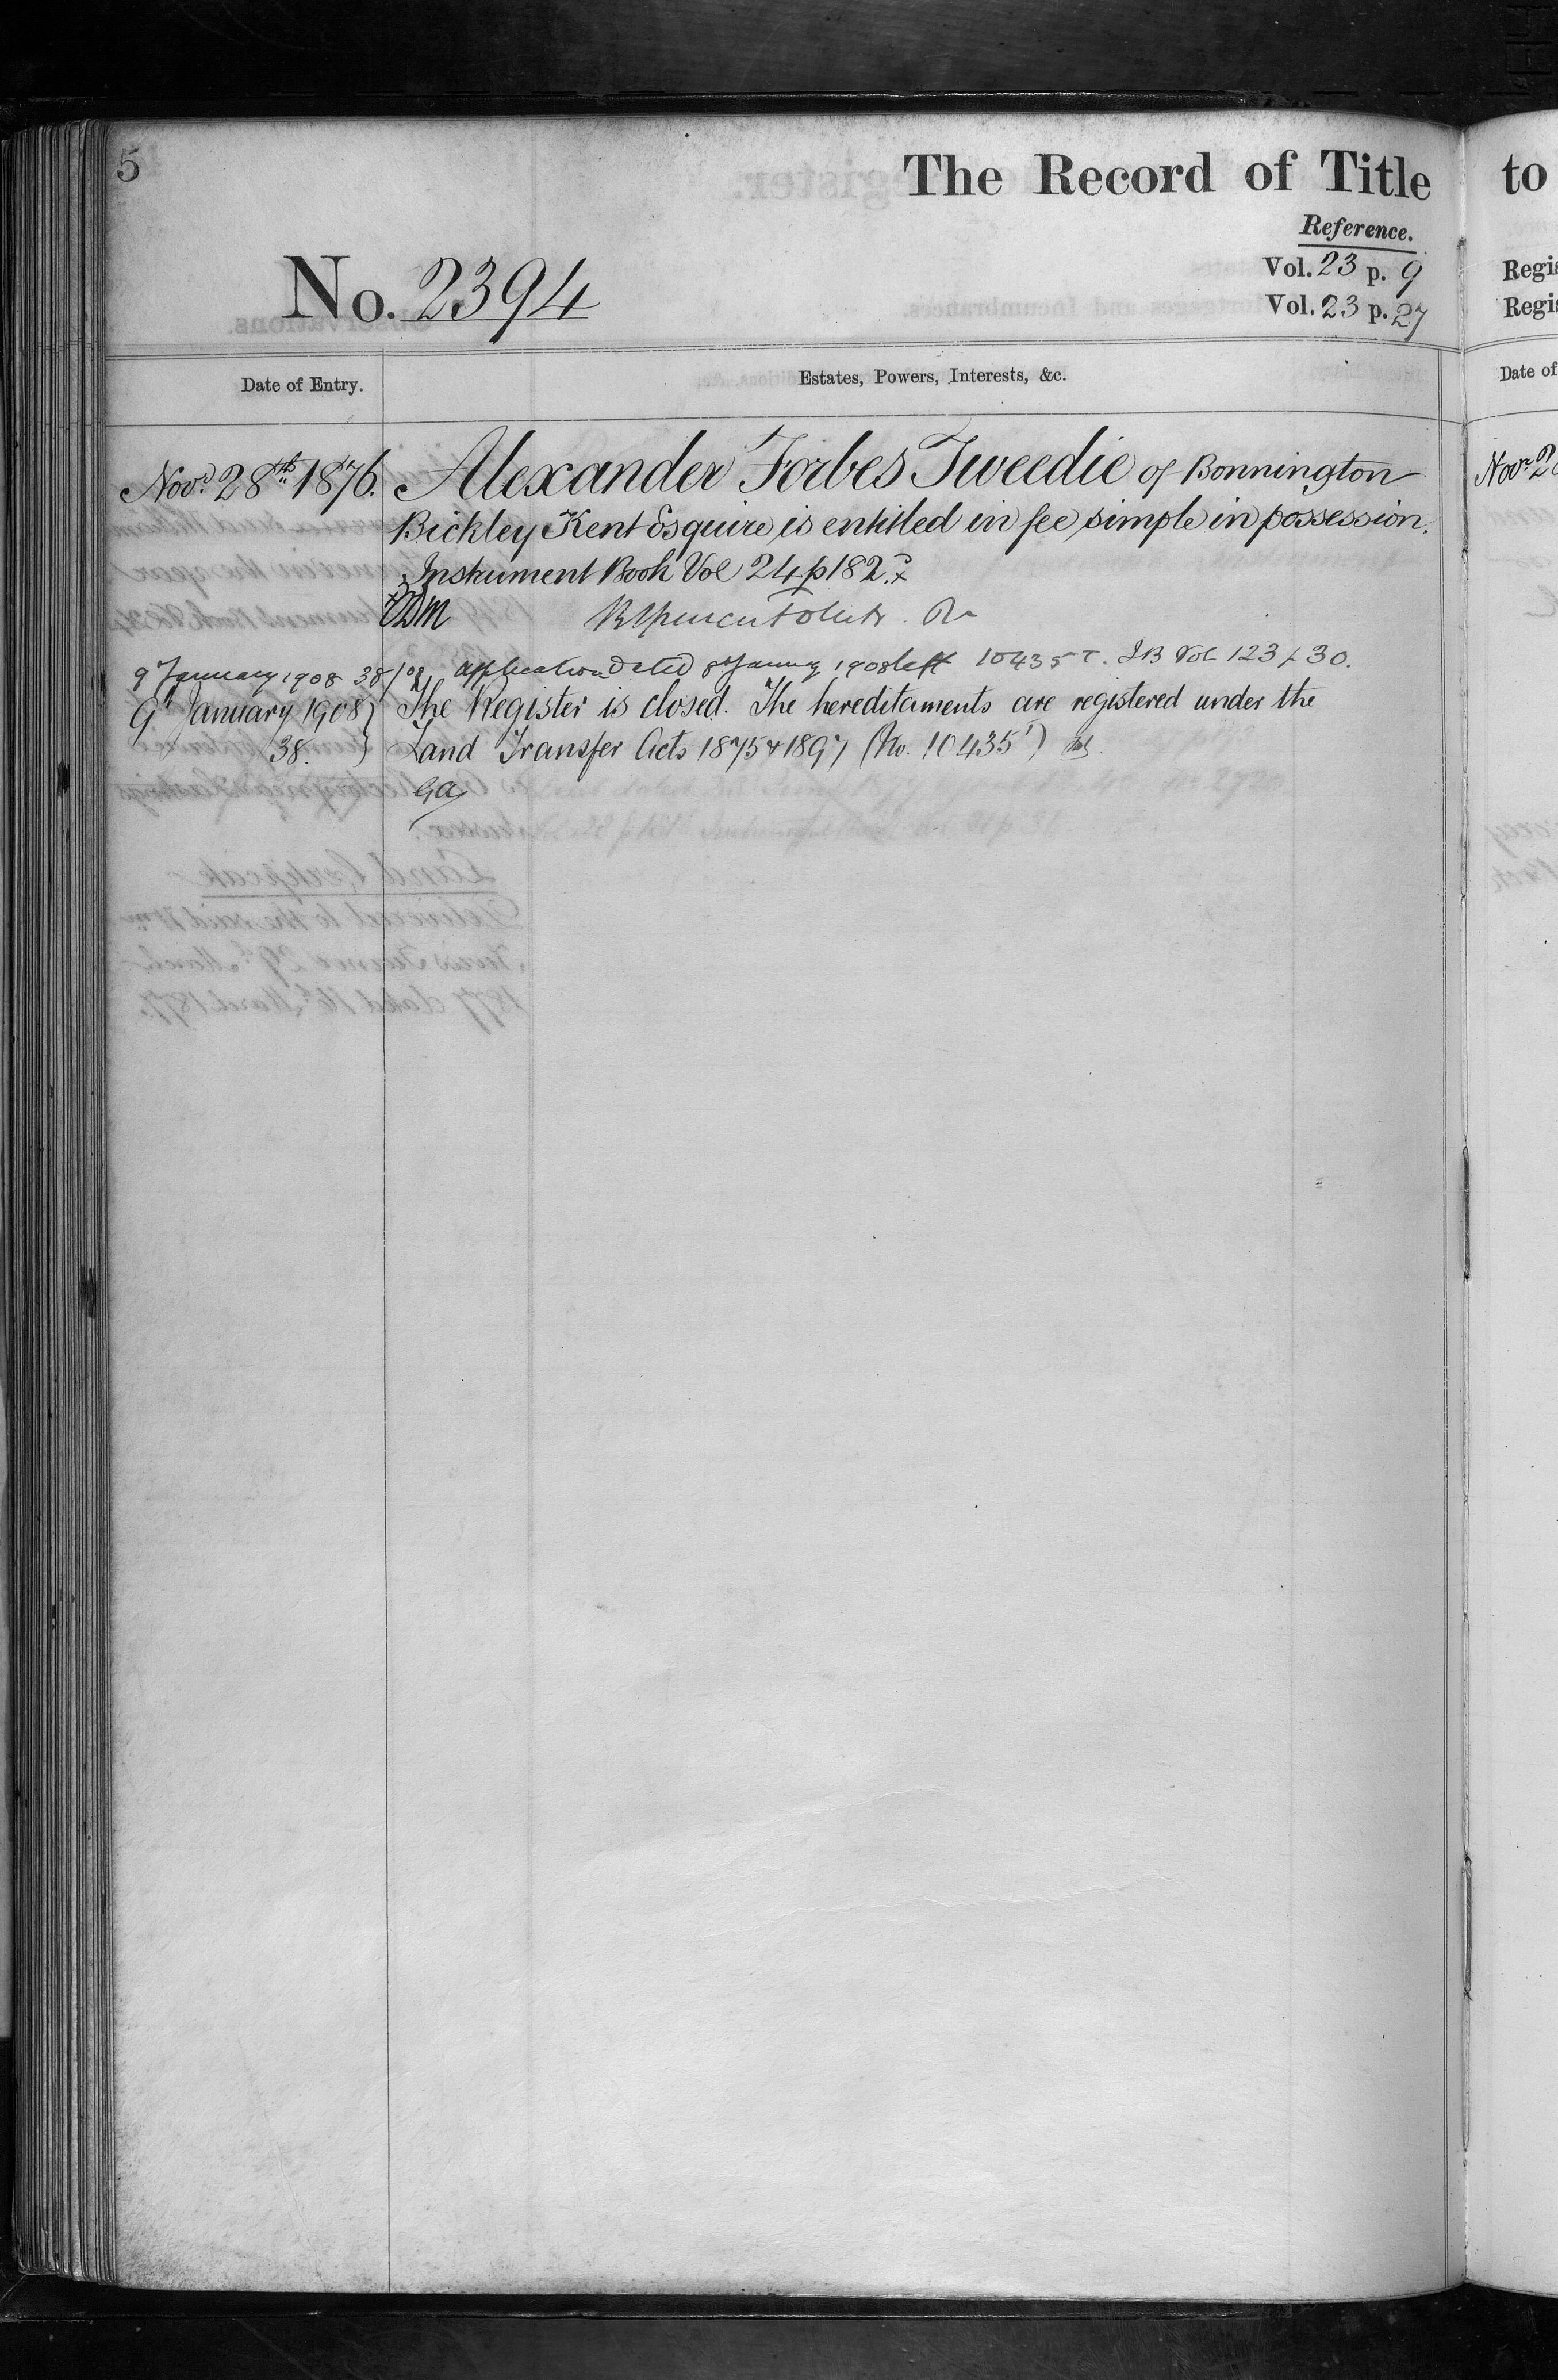 5
The Record of Title
to
Reference.
No. 2394
Vol. 23 p. 9
Vol. 23 p. 27
Regis
Regis
Date of Entry.
Estates, Powers, Interests, &c.
Date of
Novr. 28th 1876.
Alexander Forbes Tweedie of Bonnington
Bickley Kent Esquire is entitled in fee simple in possession.
Instrument Book Vol 24 p 182.
Novr 2
9 January 1908 38/08 Application dated 8th January 1908 left 10435 T. IB Vol 123 p 30.
9th January 1908
38.
The Register is closed. The hereditaments are registered under the
Land Transfer Acts 1875 & 1897 (No. 10435)